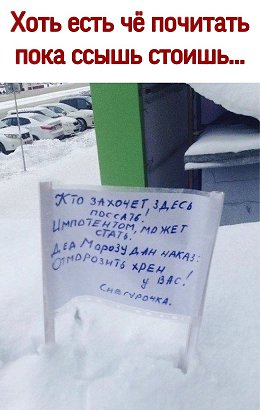 Хоть есть чё почитать
пока ссышь стоишь...
Кто захочет здесь
поссать!
Импотентом, может
стать!
Дед Морозу дан наказ:
Отморозить хрен
у вас!
Снегурочка.